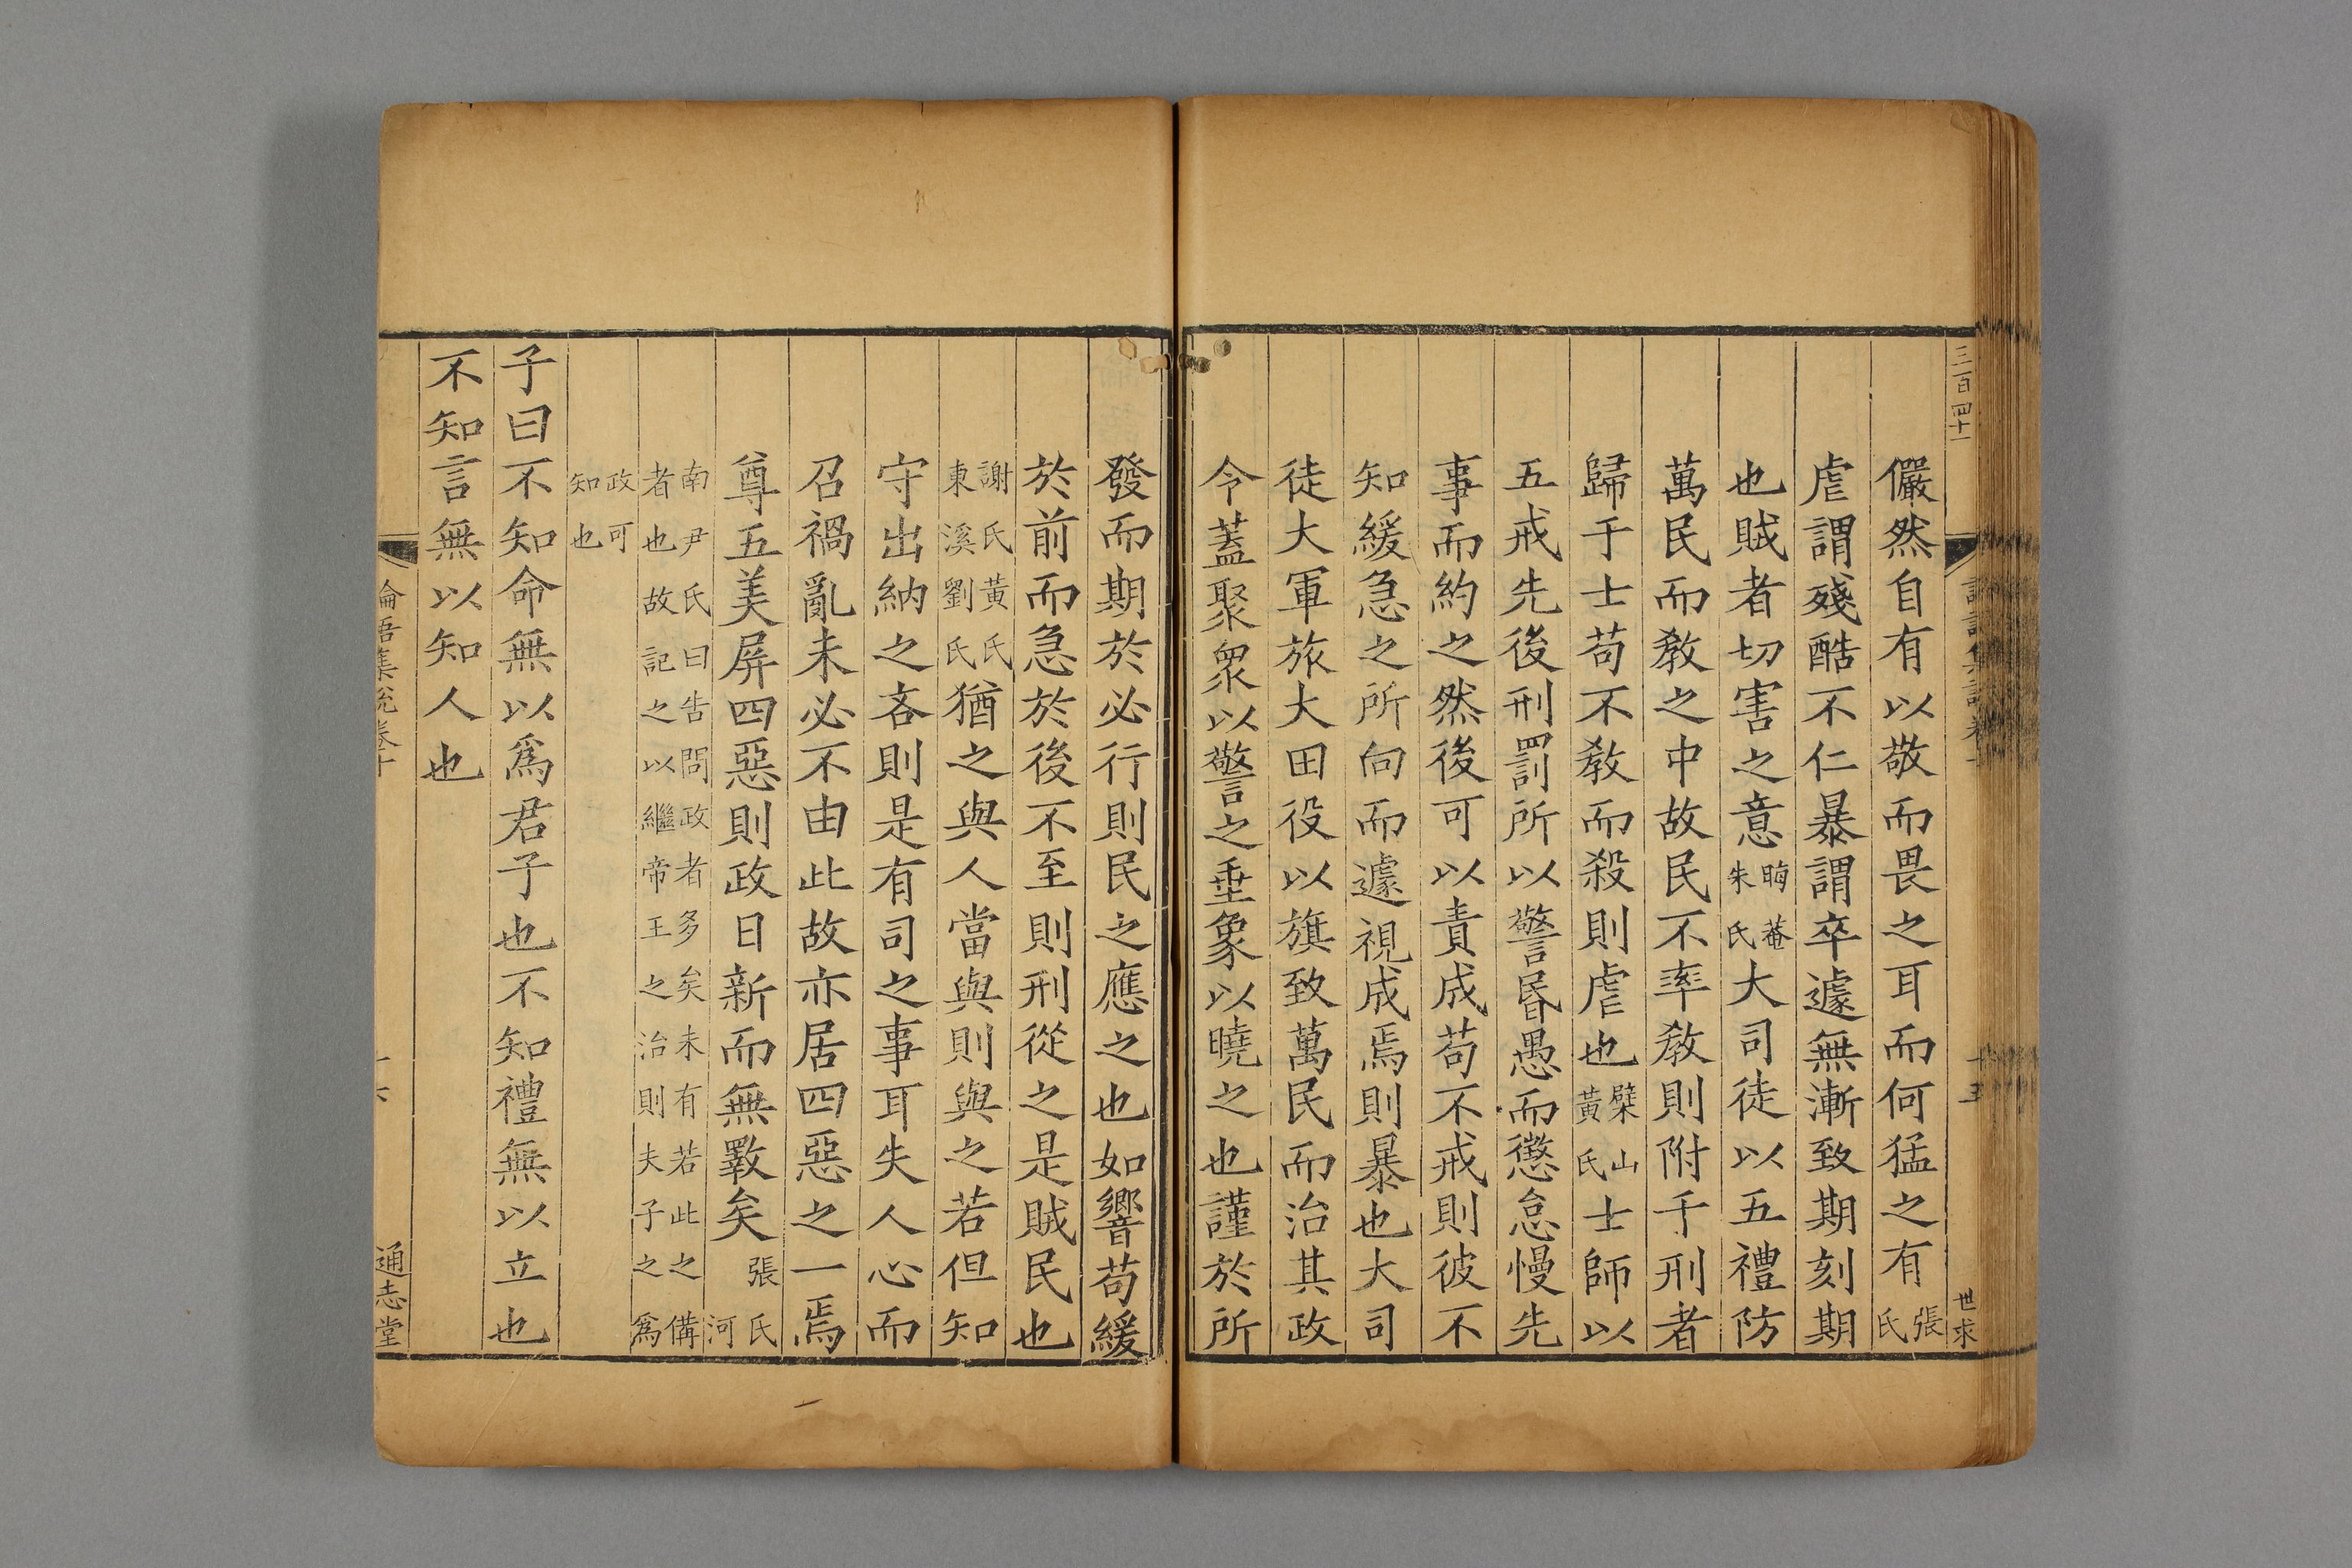 三百四十一
世求
儼然自有以敬而畏之耳而何猛之有張氏
虐謂殘酷不仁暴謂卒遽無漸致期刻期
也賊者切害之意晦菴朱氏大司徒以五禮防
萬民而敎之中故民不率敎則附于刑者
歸于士苟不敎而殺則虐也檗山黃氏士師以
五戒先後刑罰所以警昬愚而懲怠慢先
事而約之然後可以責成苟不戒則彼不
知緩急之所向而遽視成焉則暴也大司
徒大軍旅大田役以旗致萬民而治其政
令蓋聚衆以警之垂象以曉之也謹於所
發而期於必行則民之應之也如響苟緩
於前而急於後不至則刑從之是賊民也
謝氏黃氏東溪劉氏猶之與人當與則與之若但知
守出納之吝則是有司之事耳失人心而
召禍亂未必不由此故亦居四惡之一焉
尊五美屏四惡則政日新而無斁矣張氏河
南尹氏曰告問政者多矣未有若此之備者也故記之以繼帝王之治則夫子之爲
政可知也
子曰不知命無以爲君子也不知禮無以立也
不知言無以知人也
論語集說卷十
通志堂